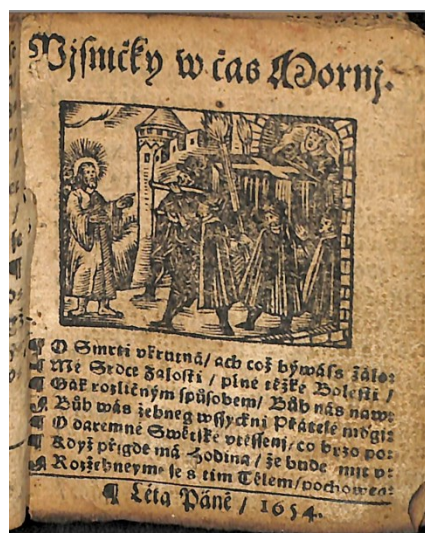 Pjsničky w čas Mornj.
¶ O Smrti vkrutná / ach což býwáss žálo⸗
¶ Mé Srdce Žalosti / plné těžké Bolesti /
¶ Gak rozličným spůsobem / Bůh nás naw⸗
¶ Bůh wás žehneg wssyckni Přátelé mogi⸗
¶ O daremné Swětské vtěssenj / co brzo po⸗
¶ Když přigde má Hodina / že bude mnt v⸗
¶ Rozžehneyme se s tim Tělem / pochoweg⸗
¶ Léta Páně / 1654.